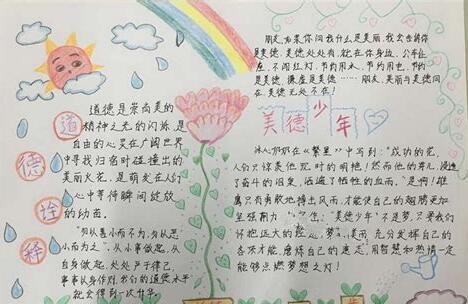 道德诠释
道德是崇尚美的
精神之光的闪烁,是
自由的心灵在广阔世界
中寻找归宿时碰撞出的
美丽火花,是萌发在人们
心中等待瞬间绽放
的幼苗。
"勿以善小而不为,勿以恶
小而为之"。从小事做起,从
自身做起,处处严于律己,
事事从身作则,我们的道德水平
就会得到一次升华。
朋友,如果你问我什么是美丽,我会告诉你
是美德,美德处处有,就在你身边,公车让
座,不闯红灯,节约用水,节约用电,
是美德,谦虚是美德……朋友,美丽与美德同
在,美德无处不在!
美德少年
冰心奶奶在《繁星》中写到:"成功的花,
人们只惊羡他现时的明艳!然而他的
了奋斗的泪泉,洒遍了牺牲的血雨。"是啊!雄
鹰只有勇敢地搏击风雨,才能使自己的翅膀更加
坚强刚力。"美德少年"不是梦,只要我们
怀把远大的理想,充分发挥自己的
各项才能,磨炼自己的意志,用智慧和热情一定
能够点燃梦想之灯!